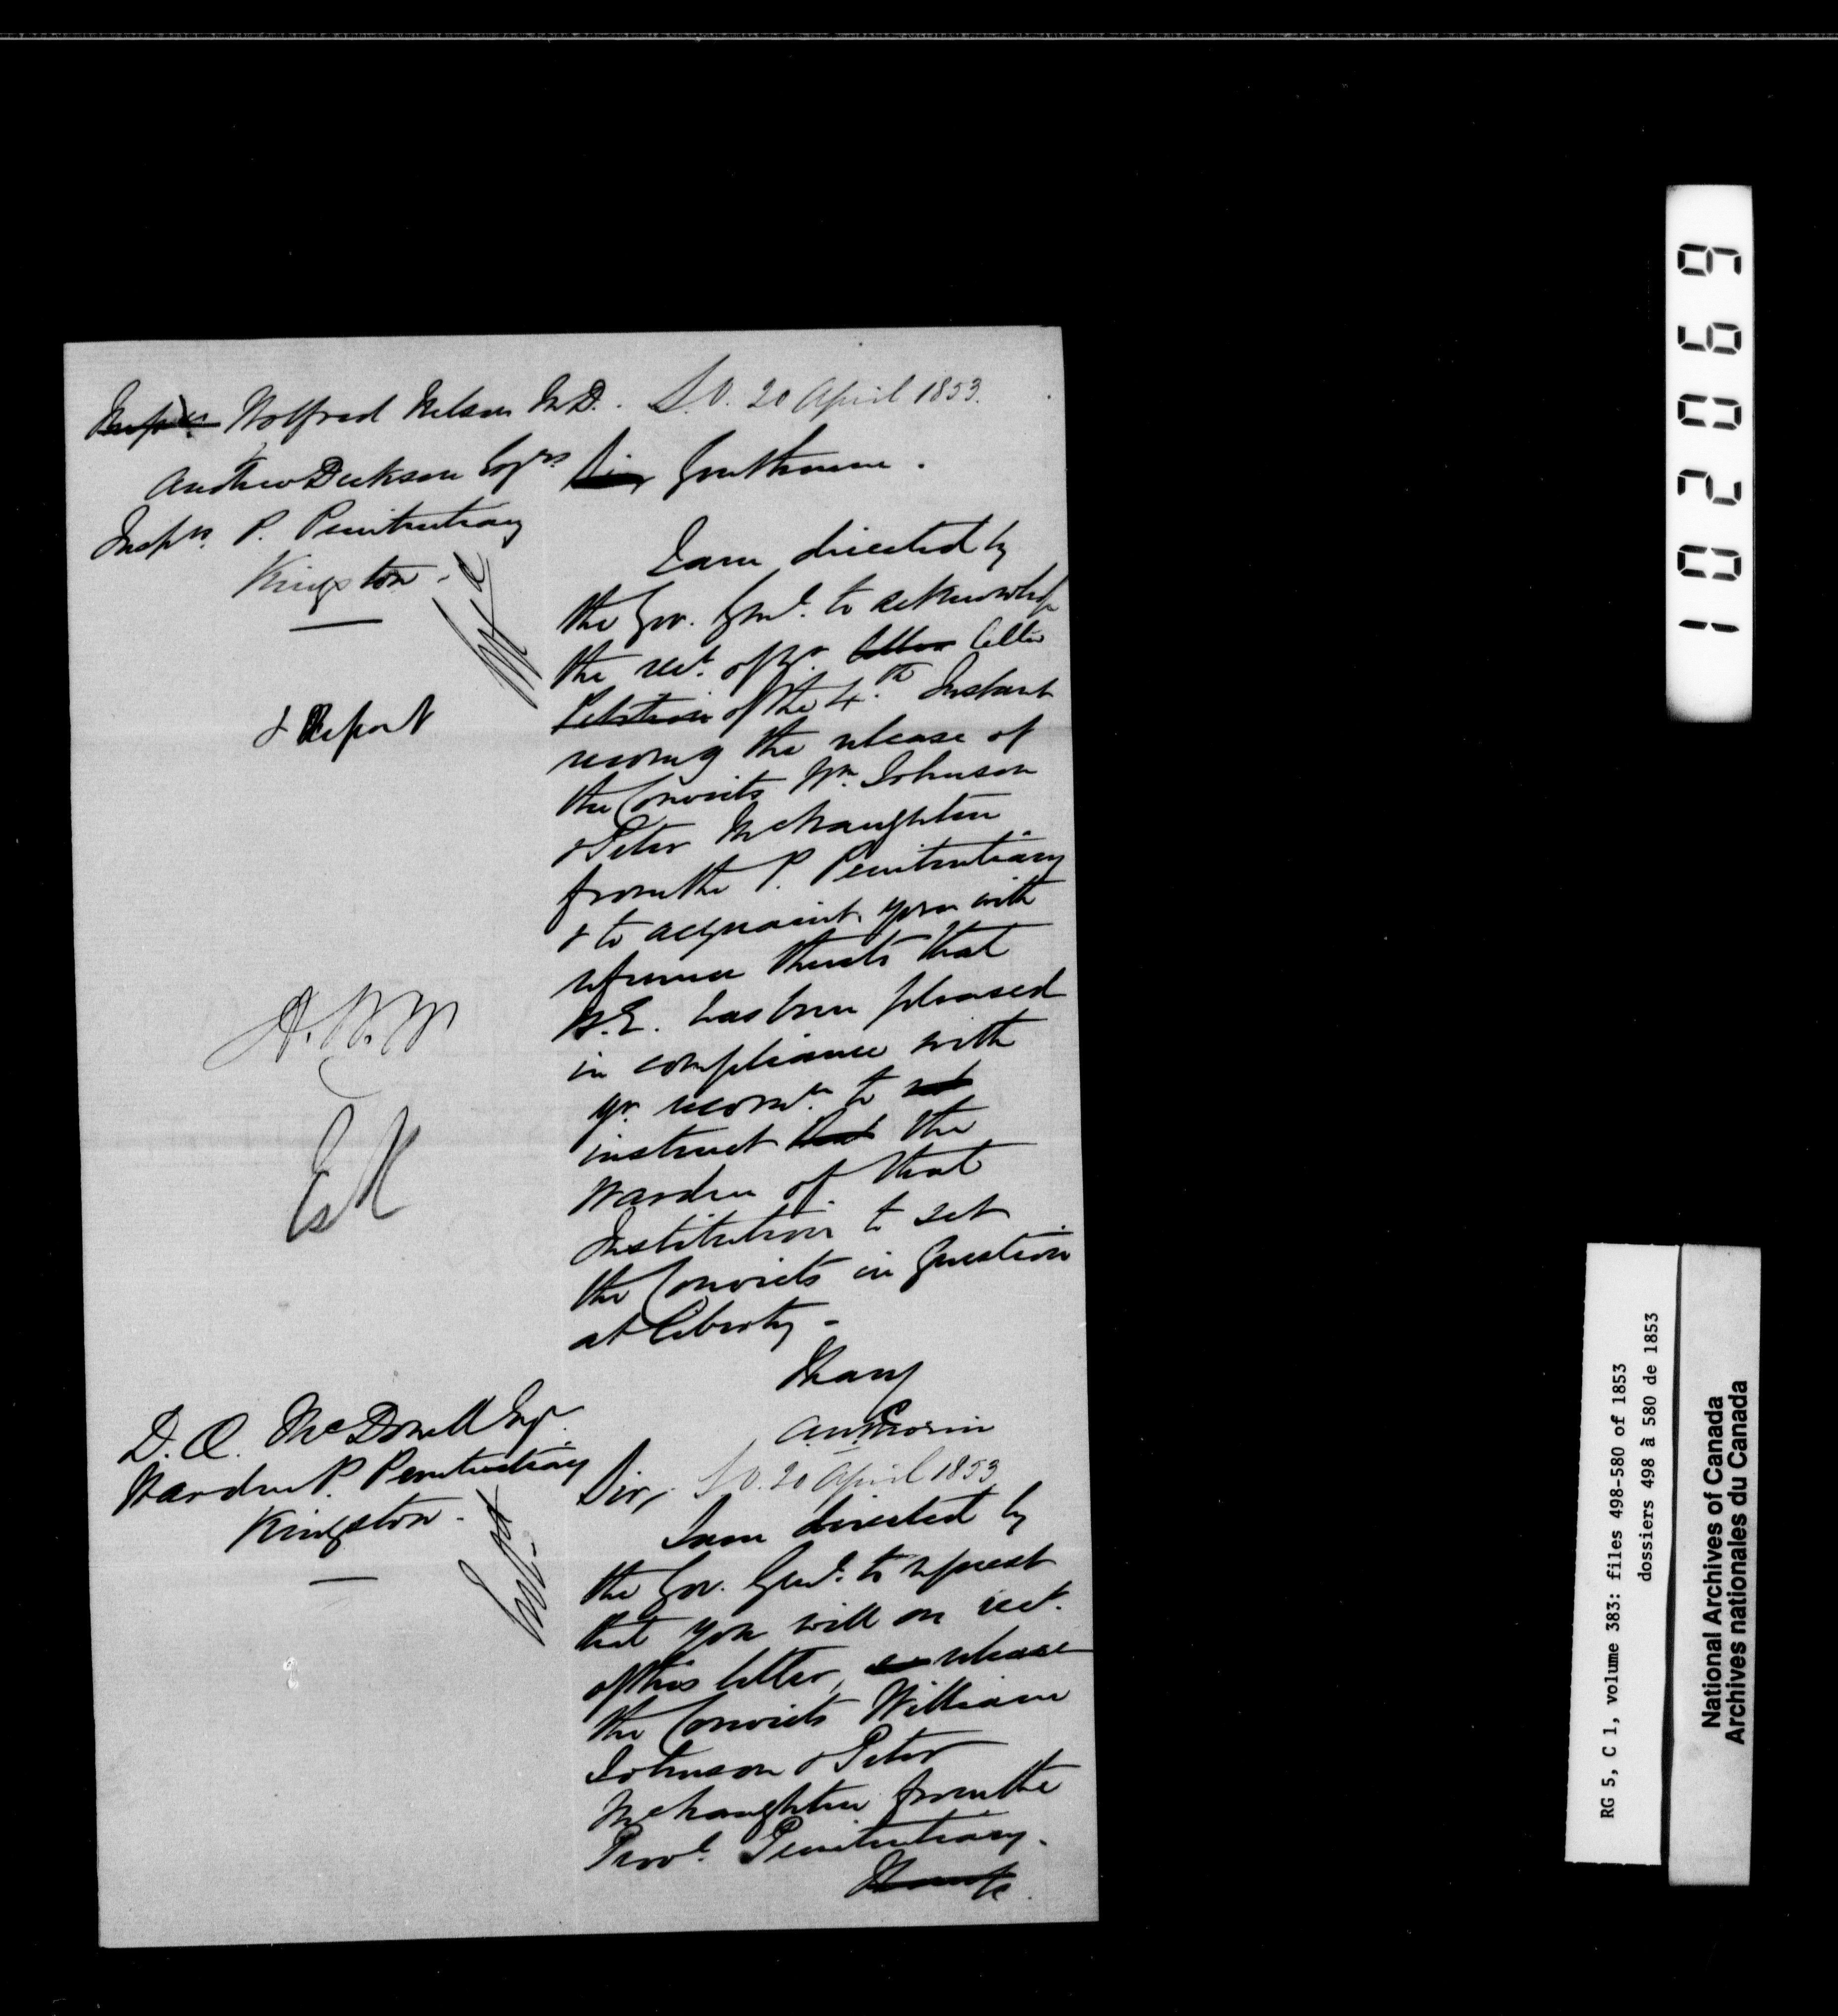 Wolfred Nelson M.D.
Andrew Dickson Esqrs
Insprs. P. Penitentiary
Kingston -
S.O. 20 April 1853.
Sir Gentlemen.
I am directed by
the Gov. Genl. to acknowledge
the rect. of yr. letter letter
Petition of the 4th Instant
recomg the release of
the Convicts Wm. Johnson
& Peter McNaughten
from the P. Penitentiary
& to acquaint you with
reference thereto that
H.E. has been pleased
in compliance with
yr. recomn. to
instruct that the
Warden of that
Institution to set
the Convicts in question
at liberty -
& Report
A.N.M
A.N. Morin
D. Æ. McDonell Esqr.
Warden P. Penitentiary
Kingston -
Sir, S.O. 20 April 1853
I am directed by
the Gov. Genl. to request
that you will on rect.
of this letter, release
the Convicts William
Johnson & Peter
McNaughten from the
Provl. Penitentiary.
102069
RG 5, C 1, volume 383: files 498-580 of 1853
dossiers 498 à 580 de 1853
National Archives of Canada
Archives nationales du Canada